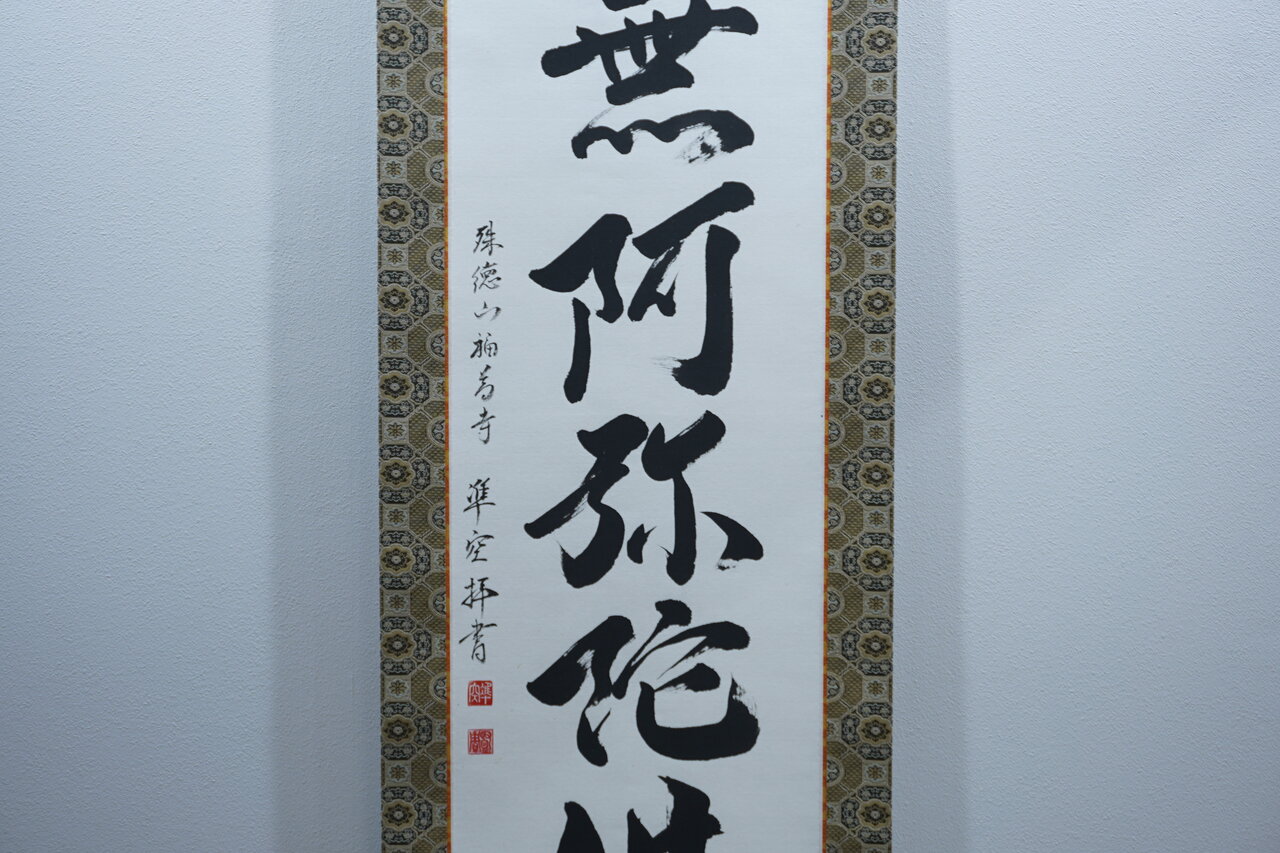 無阿弥陀佛
殊徳山福善寺 準空拝書
準空